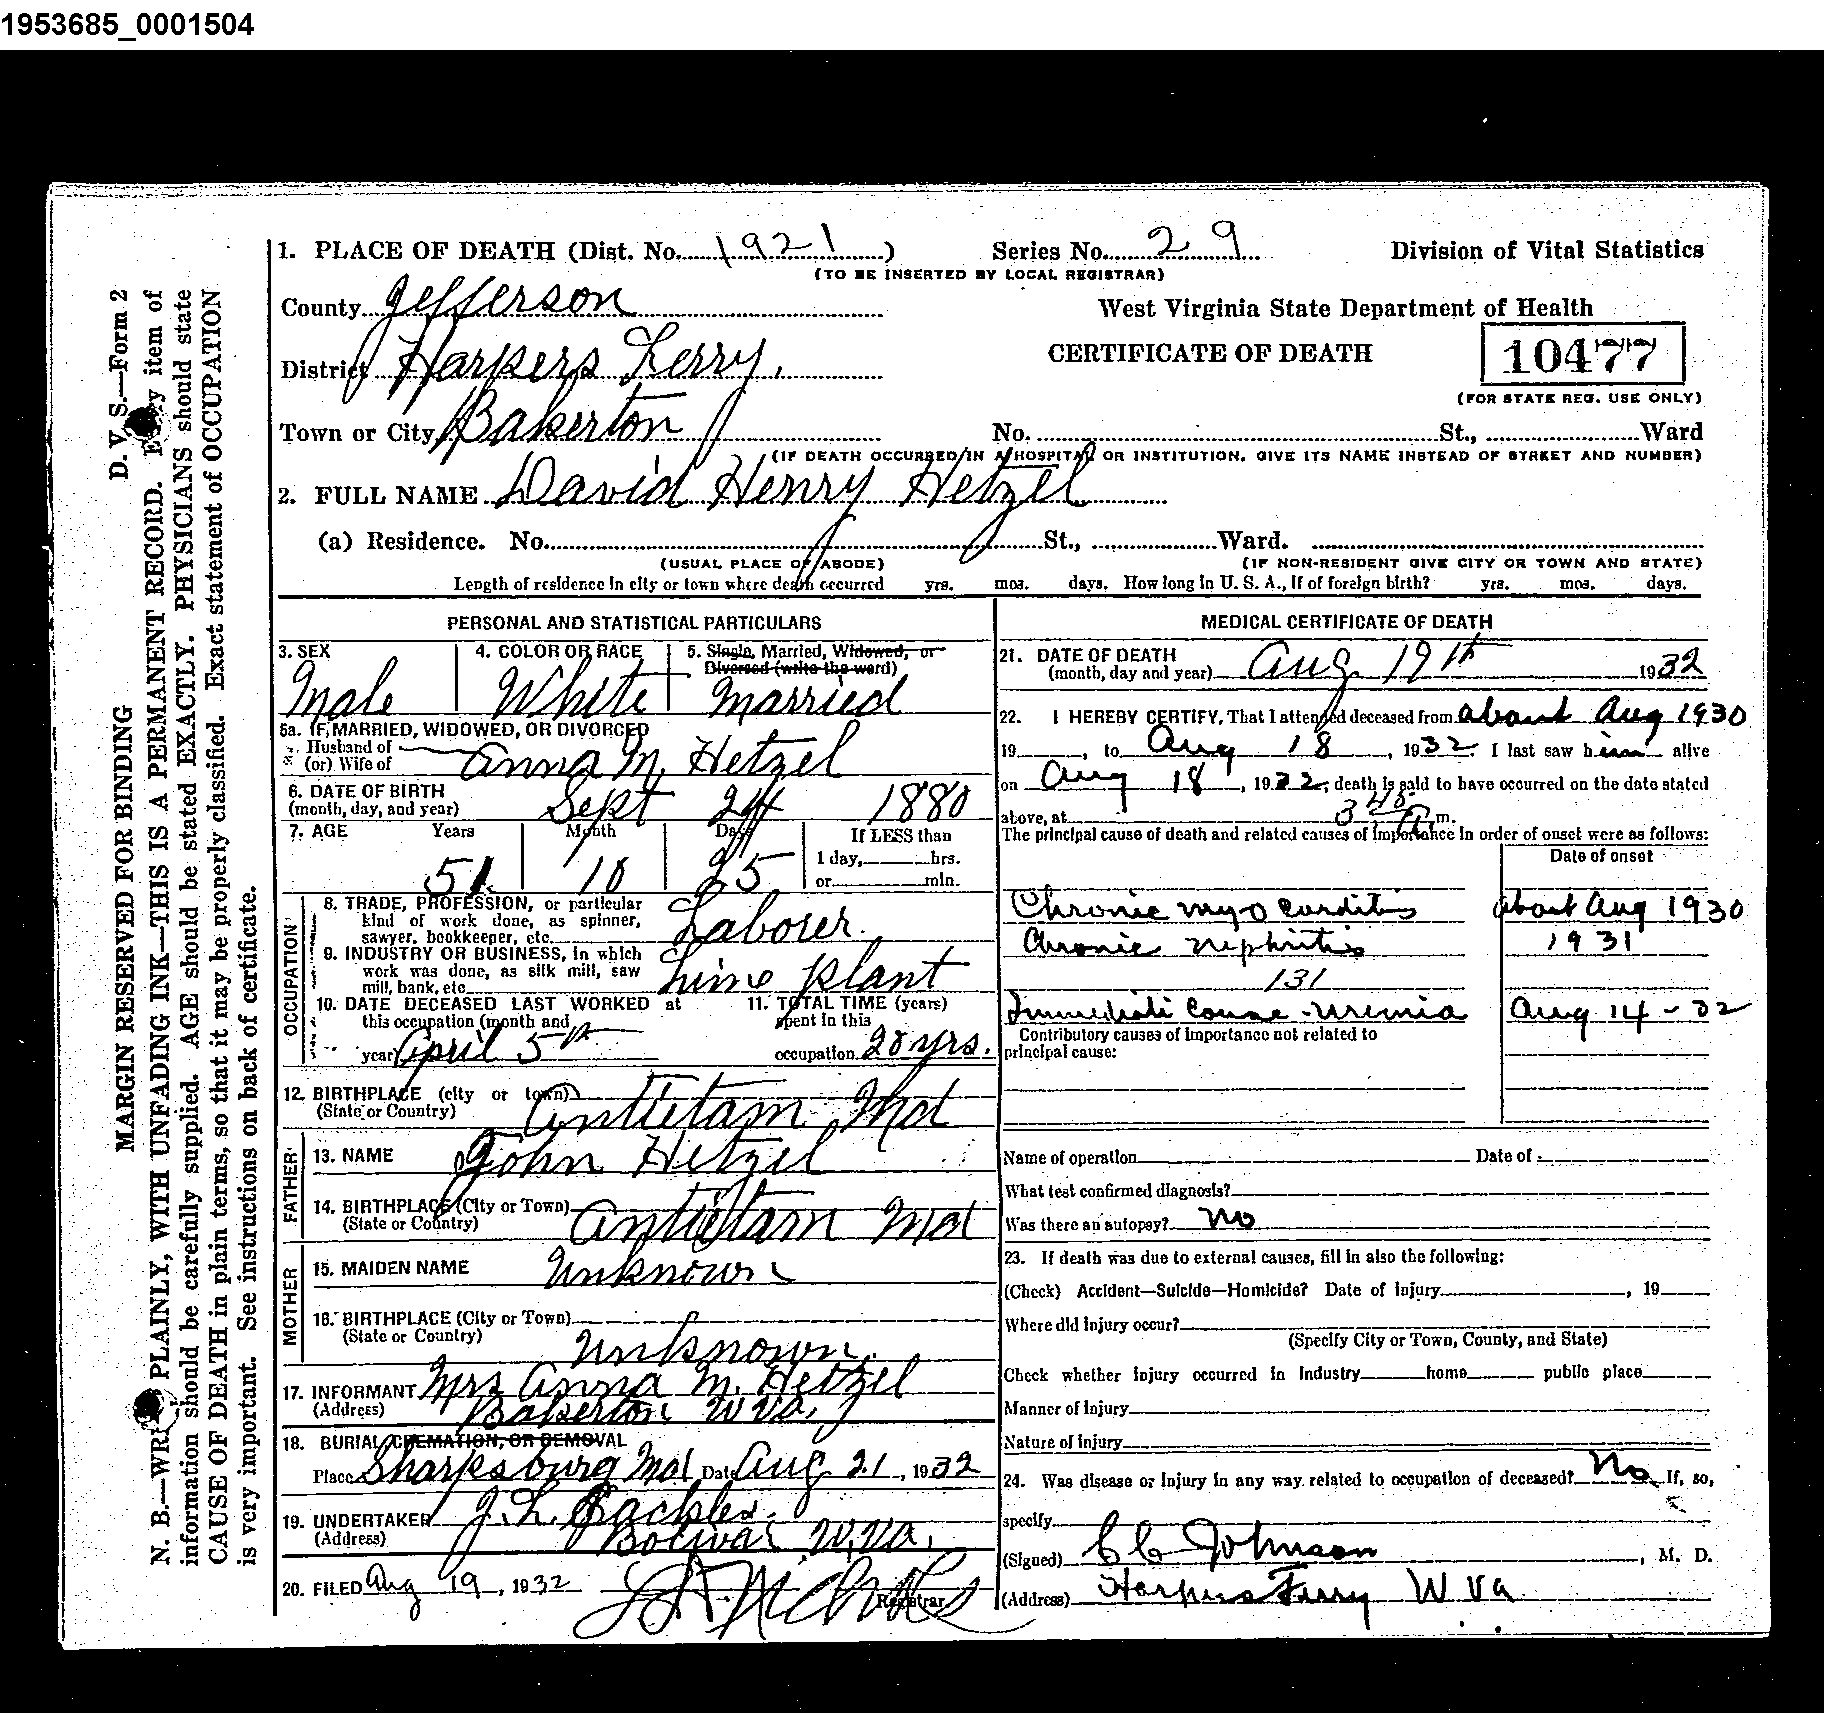 1953685_0001504
1. PLACE OF DEATH (Dist. No. 1921) Series No. 29 Division of Vital Statistics
(TO BE INSERTED BY LOCAL REGISTRAR)
County Jefferson West Virginia State Department of Health
District Harpers Ferry, CERTIFICATE OF DEATH 10477
(FOR STATE REG. USE ONLY)
Town or City Bakerton No. St., Ward
(IF DEATH OCCURRED IN A HOSPITAL OR INSTITUTION, GIVE ITS NAME INSTEAD OF STREET AND NUMBER)
2. FULL NAME David Henry Hetzel
(a) Residence. No. St., Ward.
(USUAL PLACE OF ABODE) (IF NON-RESIDENT GIVE CITY OR TOWN AND STATE)
Length of residence in city or town where death occurred yrs. mos. days. How long in U. S. A., if of foreign birth? yrs. mos. days.
PERSONAL AND STATISTICAL PARTICULARS
3. SEX 4. COLOR OR RACE 5. Single, Married, Widowed, or
Divorced (write the word)
Male White Married
5a. IF MARRIED, WIDOWED, OR DIVORCED
Husband of
(or) Wife of Anna M. Hetzel
6. DATE OF BIRTH
(month, day, and year) Sept 24 1880
7. AGE Years Month Days If LESS than
1 day, hrs.
51 10 25 or min.
OCCUPATION
8. TRADE, PROFESSION, or particular
kind of work done, as spinner,
sawyer, bookkeeper, etc. Laborer.
9. INDUSTRY OR BUSINESS, in which
work was done, as silk mill, saw
mill, bank, etc. Lime plant
10. DATE DECEASED LAST WORKED at 11. TOTAL TIME (years)
this occupation (month and spent in this
year) April 5th occupation 20 yrs.
12. BIRTHPLACE (city or town)
(State or Country) Antietam Md
FATHER
13. NAME John Hetzel
14. BIRTHPLACE (City or Town)
(State or Country) Antietam Md
MOTHER
15. MAIDEN NAME Unknown
16. BIRTHPLACE (City or Town)
(State or Country) Unknown.
17. INFORMANT Mrs Anna M. Hetzel
(Address) Bakerton W Va.
18. BURIAL, CREMATION, OR REMOVAL
Place Sharpsburg Md Date Aug 21, 1932
19. UNDERTAKER J. L.
(Address) Bolivar W. Va.
20. FILED Aug 19, 1932
Registrar
MEDICAL CERTIFICATE OF DEATH
21. DATE OF DEATH
(month, day and year) Aug 19th 1932
22. I HEREBY CERTIFY, That I attended deceased from about Aug 1930
19 , to Aug 18, 1932. I last saw him alive
on Aug 18, 1932, death is said to have occurred on the date stated
above, at 3 m.
The principal cause of death and related causes of importance in order of onset were as follows:
Date of onset
Chronic myocarditis about Aug 1930
Chronic nephritis 1931
131
Immediate cause - uremia Aug 14 - 32
Contributory causes of importance not related to
principal cause:
Name of operation Date of
What test confirmed diagnosis?
Was there an autopsy? No
23. If death was due to external causes, fill in also the following:
(Check) Accident—Suicide—Homicide? Date of injury , 19
Where did injury occur?
(Specify City or Town, County, and State)
Check whether injury occurred in industry home public place
Manner of injury
Nature of injury
24. Was disease or injury in any way related to occupation of deceased? No If, so,
specify
(Signed) C C Johnson, M. D.
(Address) Harpers Ferry W Va
D. V. S.—Form 2
MARGIN RESERVED FOR BINDING
N. B.—WRITE PLAINLY, WITH UNFADING INK—THIS IS A PERMANENT RECORD. Every item of
information should be carefully supplied. AGE should be stated EXACTLY. PHYSICIANS should state
CAUSE OF DEATH in plain terms, so that it may be properly classified. Exact statement of OCCUPATION
is very important. See instructions on back of certificate.